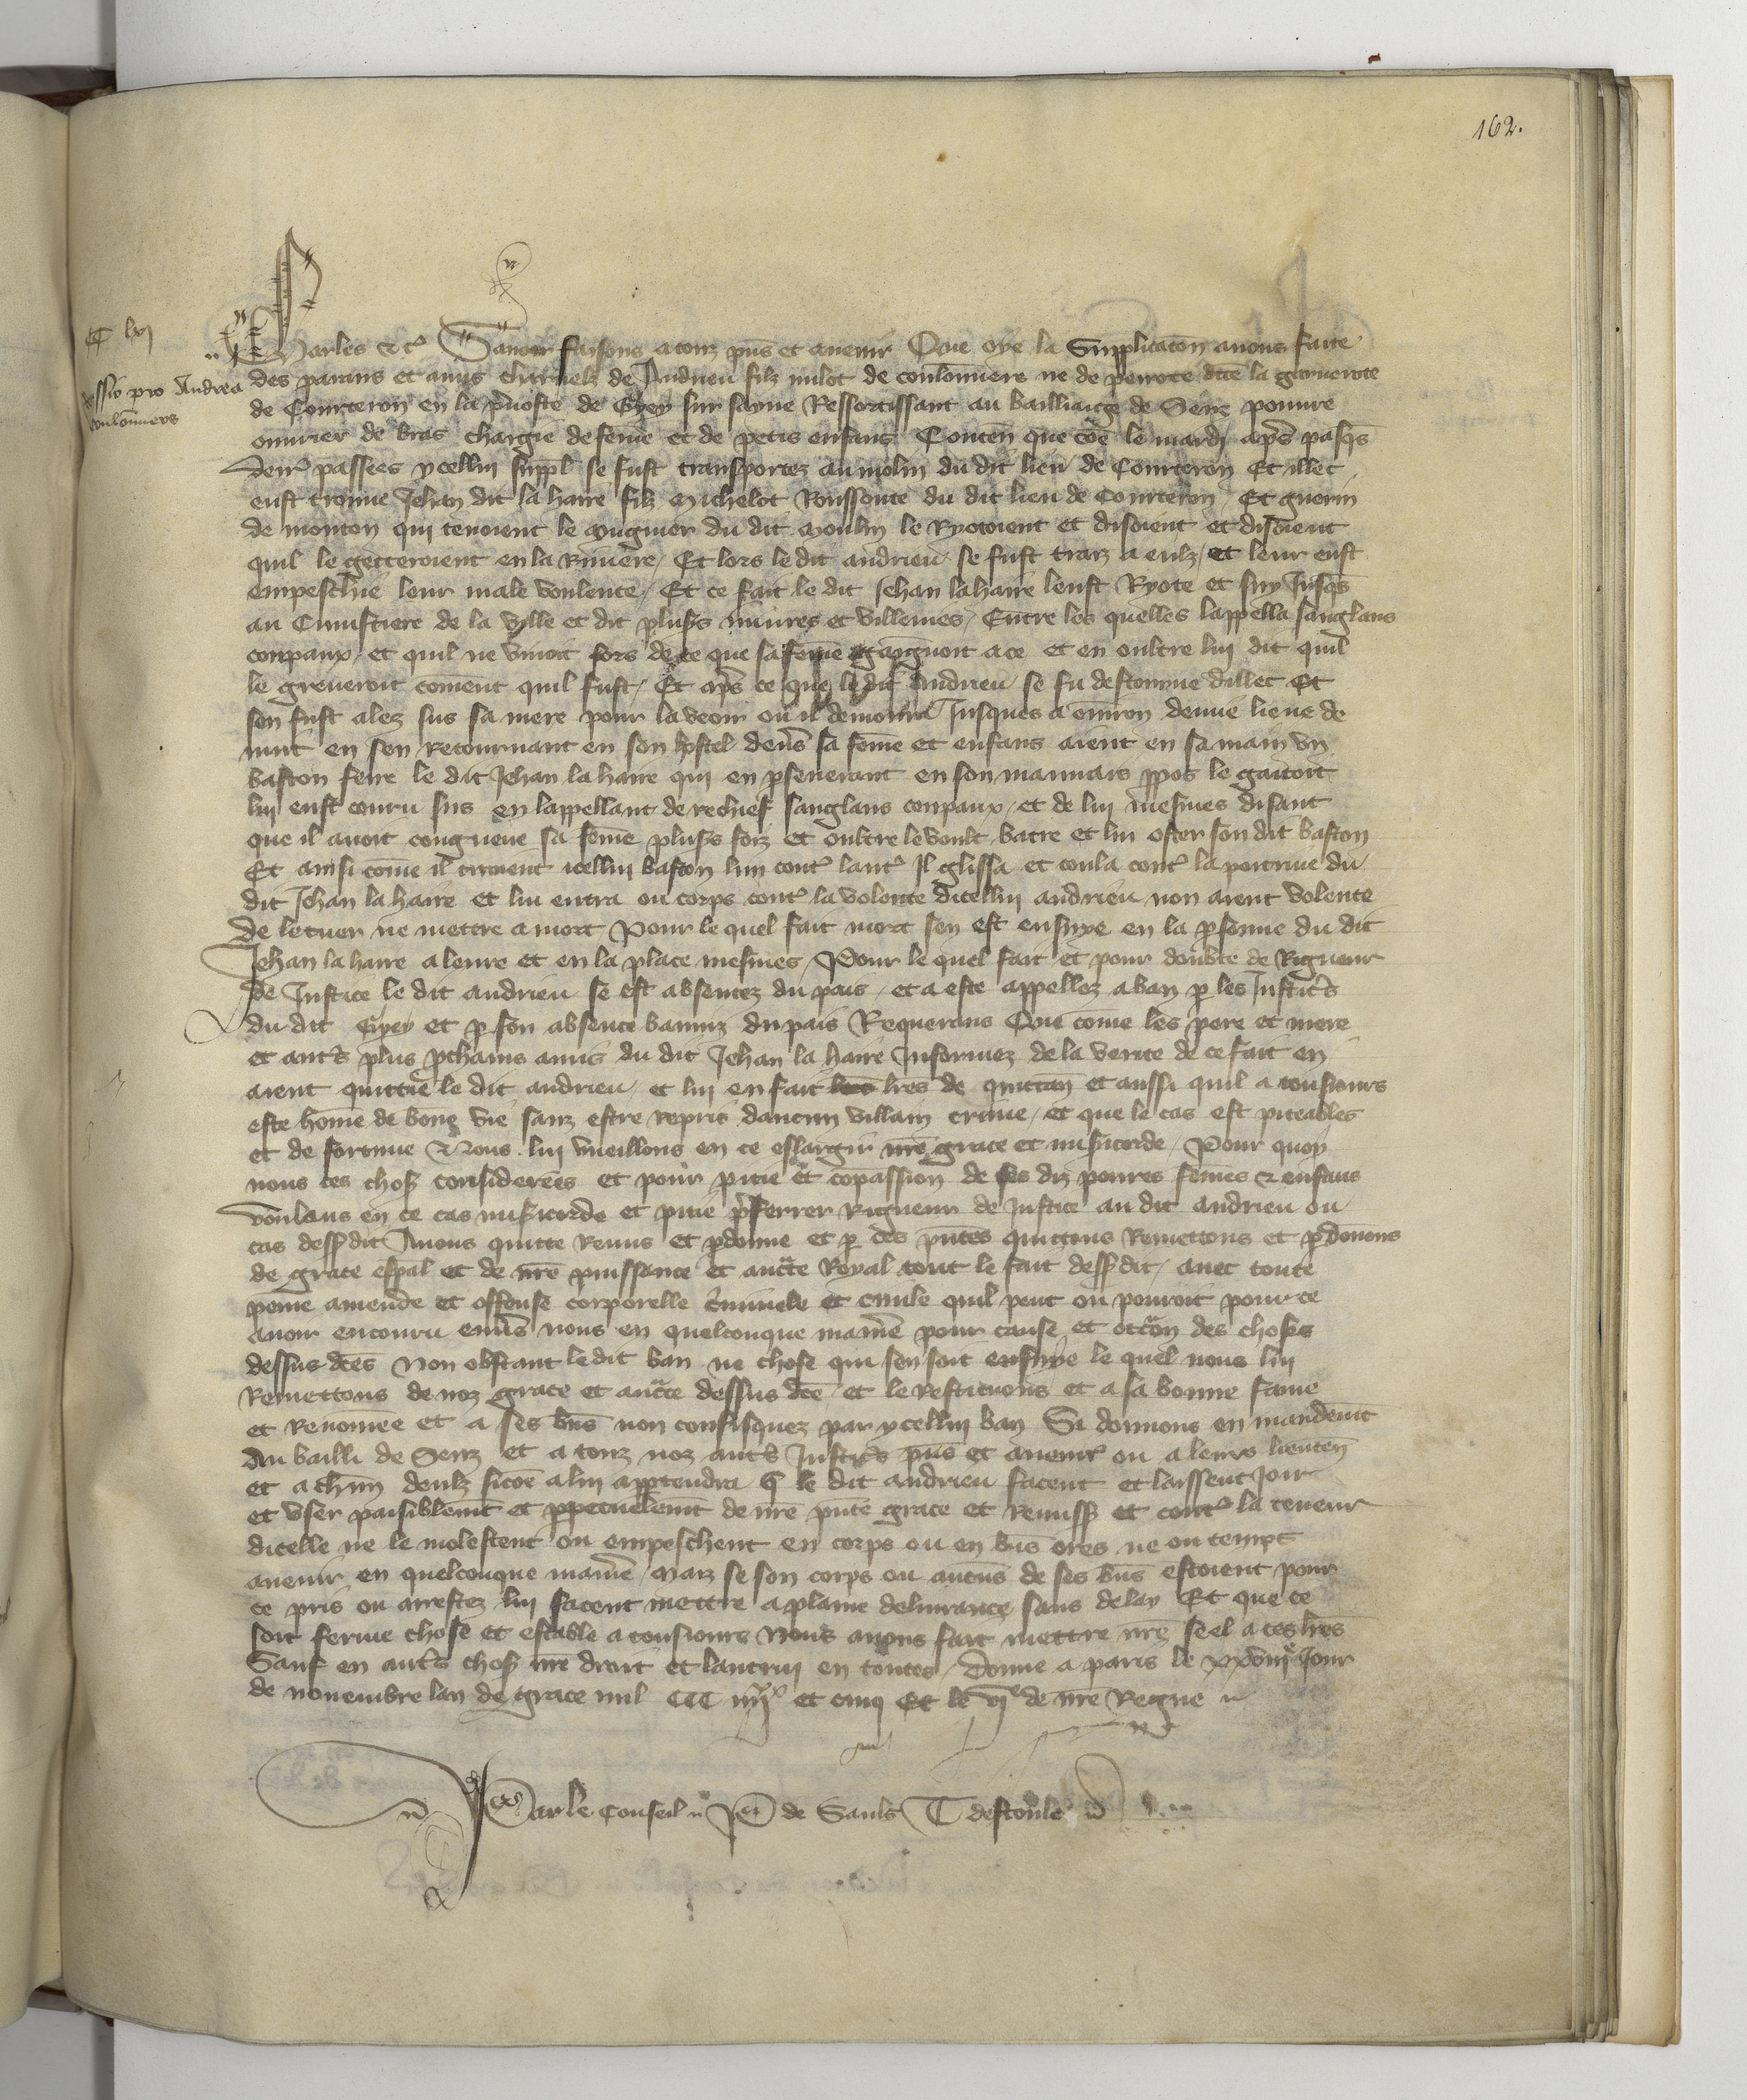 162.
C lxj
Remissio pro Andrea
Coulonniers
Charles &c Savoir faisons a touz pns et avenir Que oye la Supplicacon a nous faicte
des parans et amis charnelz de Andrieu filz milot de coulonniere ne de perrote dce la garnerote
de Courteron en la pvoste de Gyey sur sayne Ressortissant au bailliaige de Senz povure
ouvrier de bras chargie de feme et de petis enfans Conten que coe le mardi apres pasqs
derr passees ycellui suppl se fust transportez au molin du dit lieu de Courteron Et illec
eust trouve Jehan dit la haire filz Michelot Roussotte du dit lieu de Courteron Et guerin
de monton qui tenoient le mugnier du dit moulin le Ryotoient et disoient et disoient
quil le getteroient en la Riviere / Et lors le dit andrieu se fust traiz a eulz / et leur eust
empeschie leur male voulente / Et ce fait le dit Jehan la haire leust Ryote et suy Jusqs
au Cimistiere de la ville et dit plusrs iniures et villenies / Entre les quelles lappella sanglans
coupaux / et quil ne vivoit fors de ce que sa feme gaignoit a ce et en oultre lui dit quil
le greveroit coment quil fust / Et apres ce que le dit Andrieu se fu destourne dillec Et
sen fust alez sus sa mere pour la veoir ou il demoura Jusques a environ demie lieue de
nuit en son retournant en son hostel devs sa feme et enfans aient en sa main un
baston ferre le dit Jehan la haire qui en pseverant en son mauvais ppos le gaitoit
lui eust couru sus en lappellant de rechief sanglans coupaux / et de lui mesmes disant
que il avoit congneue sa feme plusrs foiz et oultre le voult batre et lui oster son dit baston
Et ainsi come il tiroient icellui baston lun contr lautr Il glissa et coula contr la poitrine du
dit Jehan la haire et lui entra ou corps contr la volente dicellui andrieu non aient volente
de le tuer ne mettre a mort Pour le quel fait mort sen est ensuye en la psonne du dit
Jehan la haire a leure et en la place mesmes / Pour le quel fait et pour doubte de Rigueur
de Justice le dit andrieu se est absentez du pais / et a este appellez a ban p les Justics
du dit Gyey et p son absence banniz du pais Requerans Que come les pere et mere
et autrs plus pchains amis du dit Jehan la haire Informez de la verite de ce fait en
aient quittie le dit andrieu / et lui en fait lres de quittan et aussi quil a tousiours
este home de bone vie sanz estre repris daucun villain crime / et que le cas est piteables
et de fortune Nous lui vueillons en ce eslargir nre grace et misicorde / Pour quoy
nous ces chos considerees et pour pitie et copassion de ses diz poures femes & enfans
voulans en ce cas misicorde et pitie pferrer Rigueur de Justice au dit andrieu ou
cas dessdit Avons quitte Remis et pdonne et p ces pntes quittons Remettons et pdonons
de grace espal et de nre puissance et aucte Royal tout le fait dessdit / avec toute
peine amende et offense corporelle criminele et civile quil peut ou pourroit pour ce
avoir encouru envs nous en quelconque manie pour cause et occon des choses
dessus dces Non obstant le dit ban ne chose qui sen soit ensuye le quel nous lui
Remettons de noz grace et aucte dessus dce / et le restituons et a sa bonne fame
et Renomee et a ses bns non confisquez par ycellui ban Si donnons en mandemt
Au bailli de Senz et a touz noz autrs Justics pns et avenir ou a leurs lieuten
et a chun deulz sicoe a lui apptendra q le dit andrieu facent et laissent Joir
et user paisiblemt et ppetuelemt de nre pnte grace et remiss et contr la teneur
dicelle ne le molestent ou empeschent en corps ou en bns ores ne ou temps
avenir en quelconque manie / Maiz se son corps ou aucuns de ses bns estoient pour
ce pris ou arrestez lui facent mettre a plaine delivrance sans delay Et que ce
soit ferme chose et estable a tousiours Nous avons fait mettre nre seel a ces lres
Sauf en autrs chos nre droit et lautrui en toutes / Donne a paris le xxviije Jour
de novembre lan de grace mil CCC iiijxx et cinq Et le vje de nre Regne
Par le Conseil P de Saulz T destoule